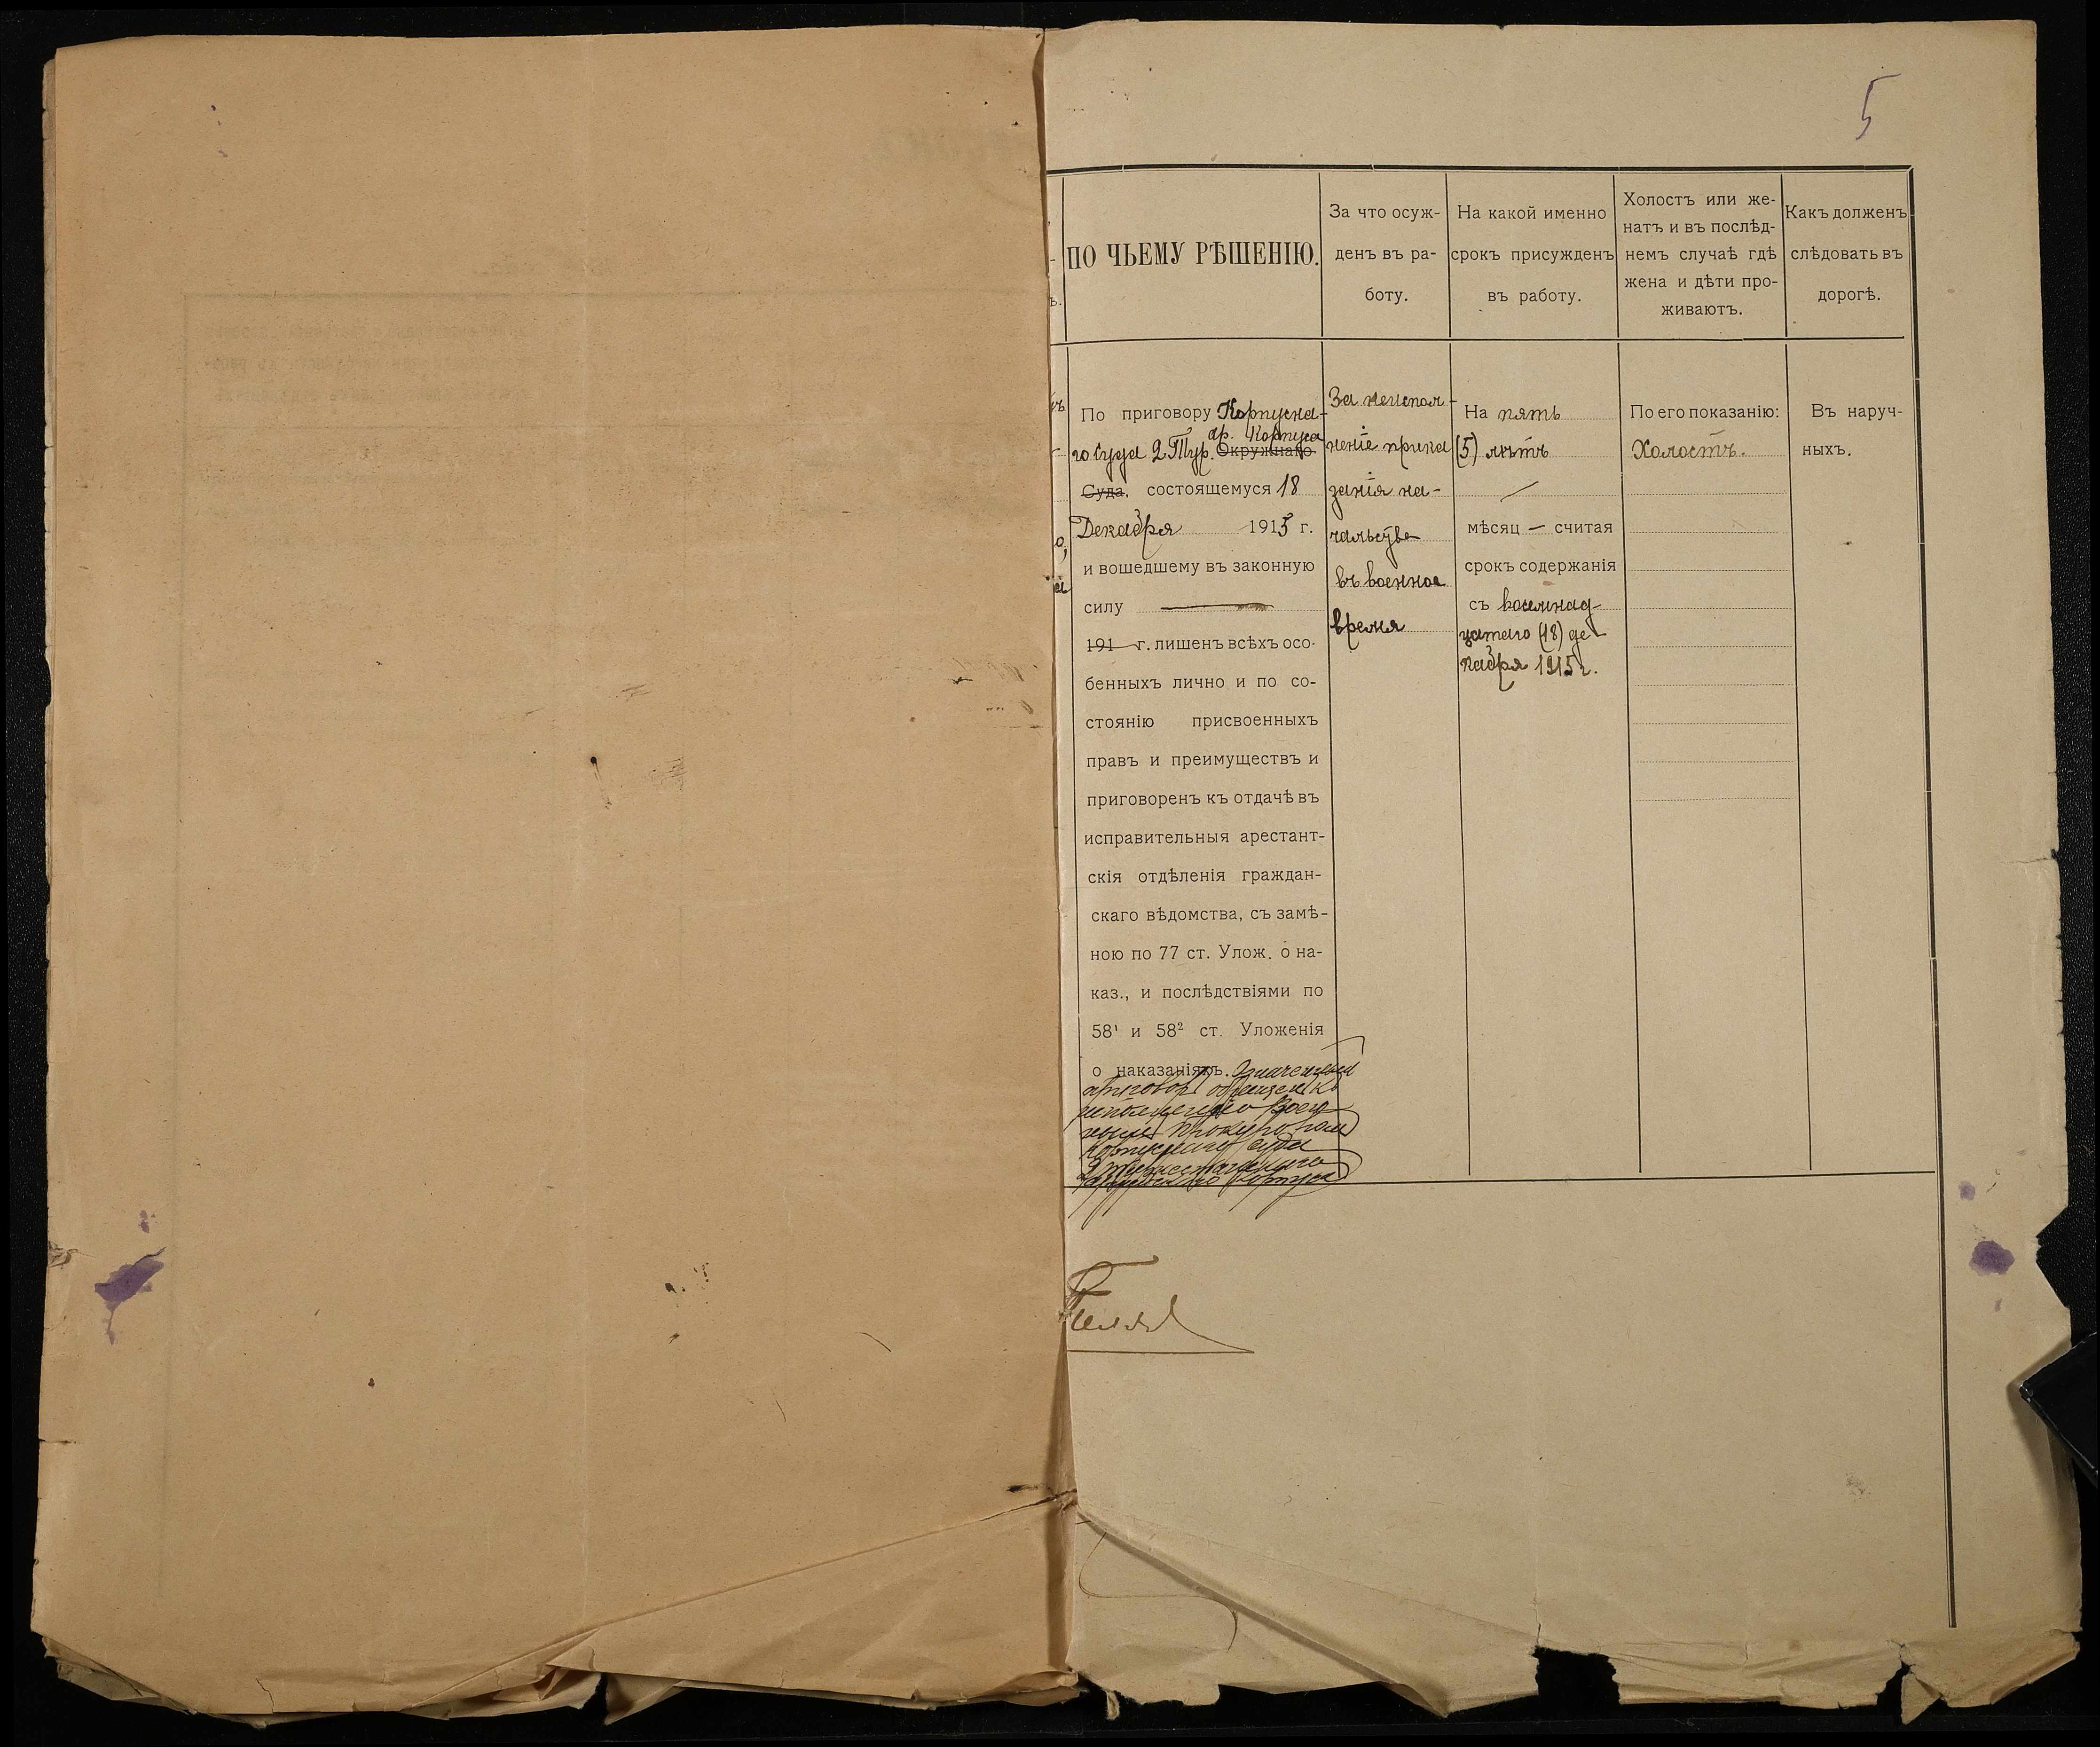 5
ПО ЧЬЕМУ РѢШЕНІЮ.
За что осуж-
денъ въ ра-
боту.
На какой именно
срокъ присужденъ
въ работу.
Холостъ или же-
натъ и въ послѣд-
немъ случаѣ гдѣ
жена и дѣти про-
живаютъ.
Какъ долженъ
слѣдовать въ
дорогѣ.
По приговору Корпусна-
ар. Корпуса
го Суда 2 Тур. Окружнаго
Суда, состоящемуся 18
Декабря 1915 г.
и вошедшему въ законную
силу —
191 — г. лишенъ всѣхъ осо-
бенныхъ лично и по со-
стоянію присвоенныхъ
правъ и преимуществъ и
приговоренъ къ отдачѣ въ
исправительныя арестант-
скія отдѣленія граждан-
скаго вѣдомства, съ замѣ-
ною по 77 ст. Улож. о на-
каз., и послѣдствіями по
58¹ и 58² ст. Уложенія
о наказаніяхъ. Означенный
приговоръ обращенъ къ
исполненію Воен
нымъ Прокуроромъ
Корпуснаго суда
2 Туркестанскаго
Армейскаго Корпуса
За неиспол-
неніе прика
занія на-
чальства
въ военное
время
На пять
(5) лѣтъ
—
мѣсяц — считая
срокъ содержанія
съ восемнад-
цатаго (18) де-
кабря 1915 г.
По его показанію:
Холостъ.
Въ наруч-
ныхъ.